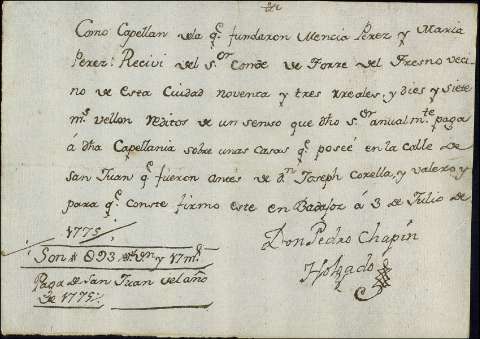 Como Capellan de la q.e fundaron Mencia Perez y Maria
Perez: Recivi del s.or Conde de Torre del Fresno veci-
no de esta Ciudad noventa y tres rreales, y dies y siete
m.s vellon Reditos de un senso que dho s.or anualm.te paga
á dha Capellania sobre unas casas q.e posée en la calle de
san Juan q.e fueron antes de d.n Joseph Corella, y Valero, y
para q.e conste firmo este en Badajoz á 3 de Julio de
1775
Don Pedro Chapin
Holgado
Son # 093 r.s v.n y 17 m.s
Paga de san Juan del año
de 1775